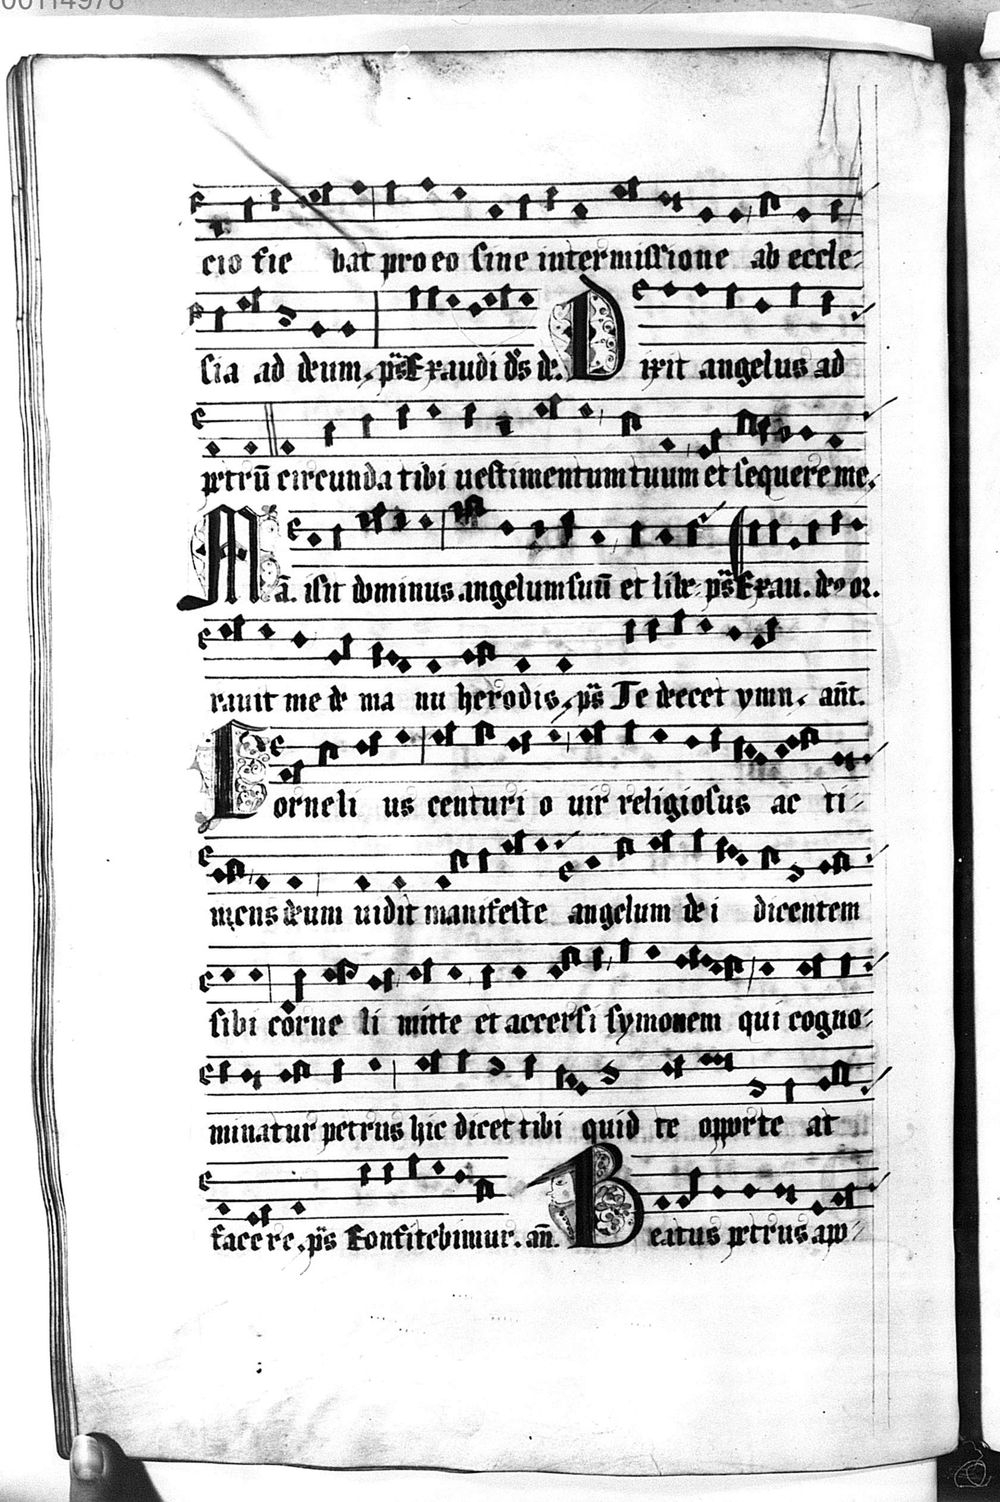 00114978
cio fie bat pro eo sine intermissione ab eccle-
sia ad deum. ps̄ Exaudi ds̄ de. Dixit angelus ad
petrū circunda tibi uestimentum tuum et sequere me.
Mā. isit dominus angelum suū et libe ps̄ Exau. de or.
rauit me de ma nu herodis. ps̄ Te decet ymn. ant̄.
Corneli us centuri o uir religiosus ac ti-
mens deum uidit manifeste angelum de i dicentem
sibi corne li mitte et accersi symonem qui cogno-
minatur petrus hic dicet tibi quid te opporte at
facere. ps̄ Confitebimur. an̄. Beatus petrus apo-